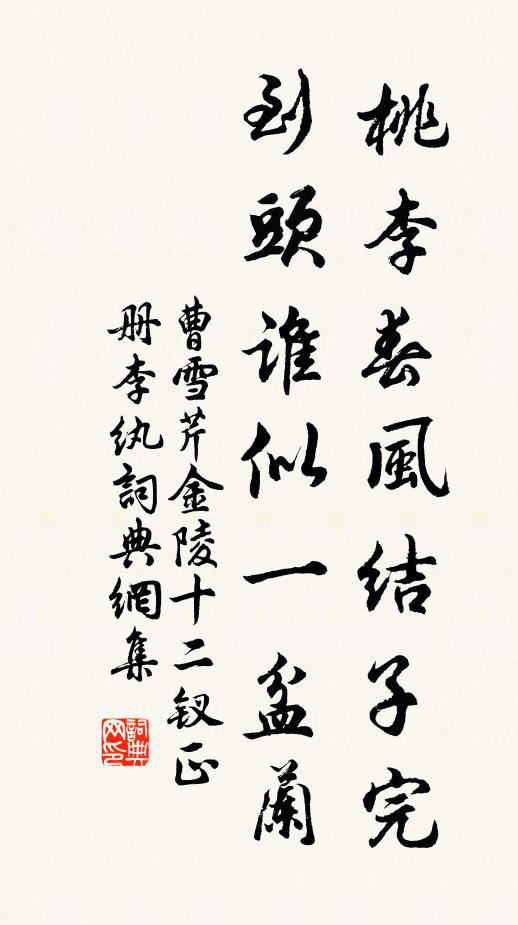 桃李春風結子完
到頭誰似一盆蘭
曹雪芹金陵十二釵正
册李紈詞典網集
詞典
网印